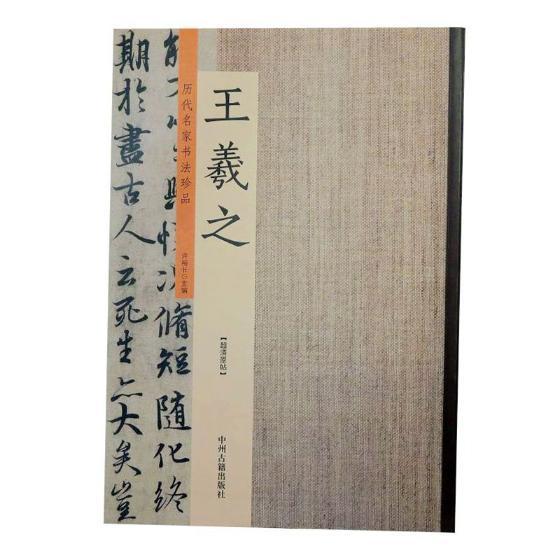 王羲之
历代名家书法珍品
主编
【超清原帖】
中州古籍出版社
脩短隨化終
期於盡古人云死生亦大矣豈